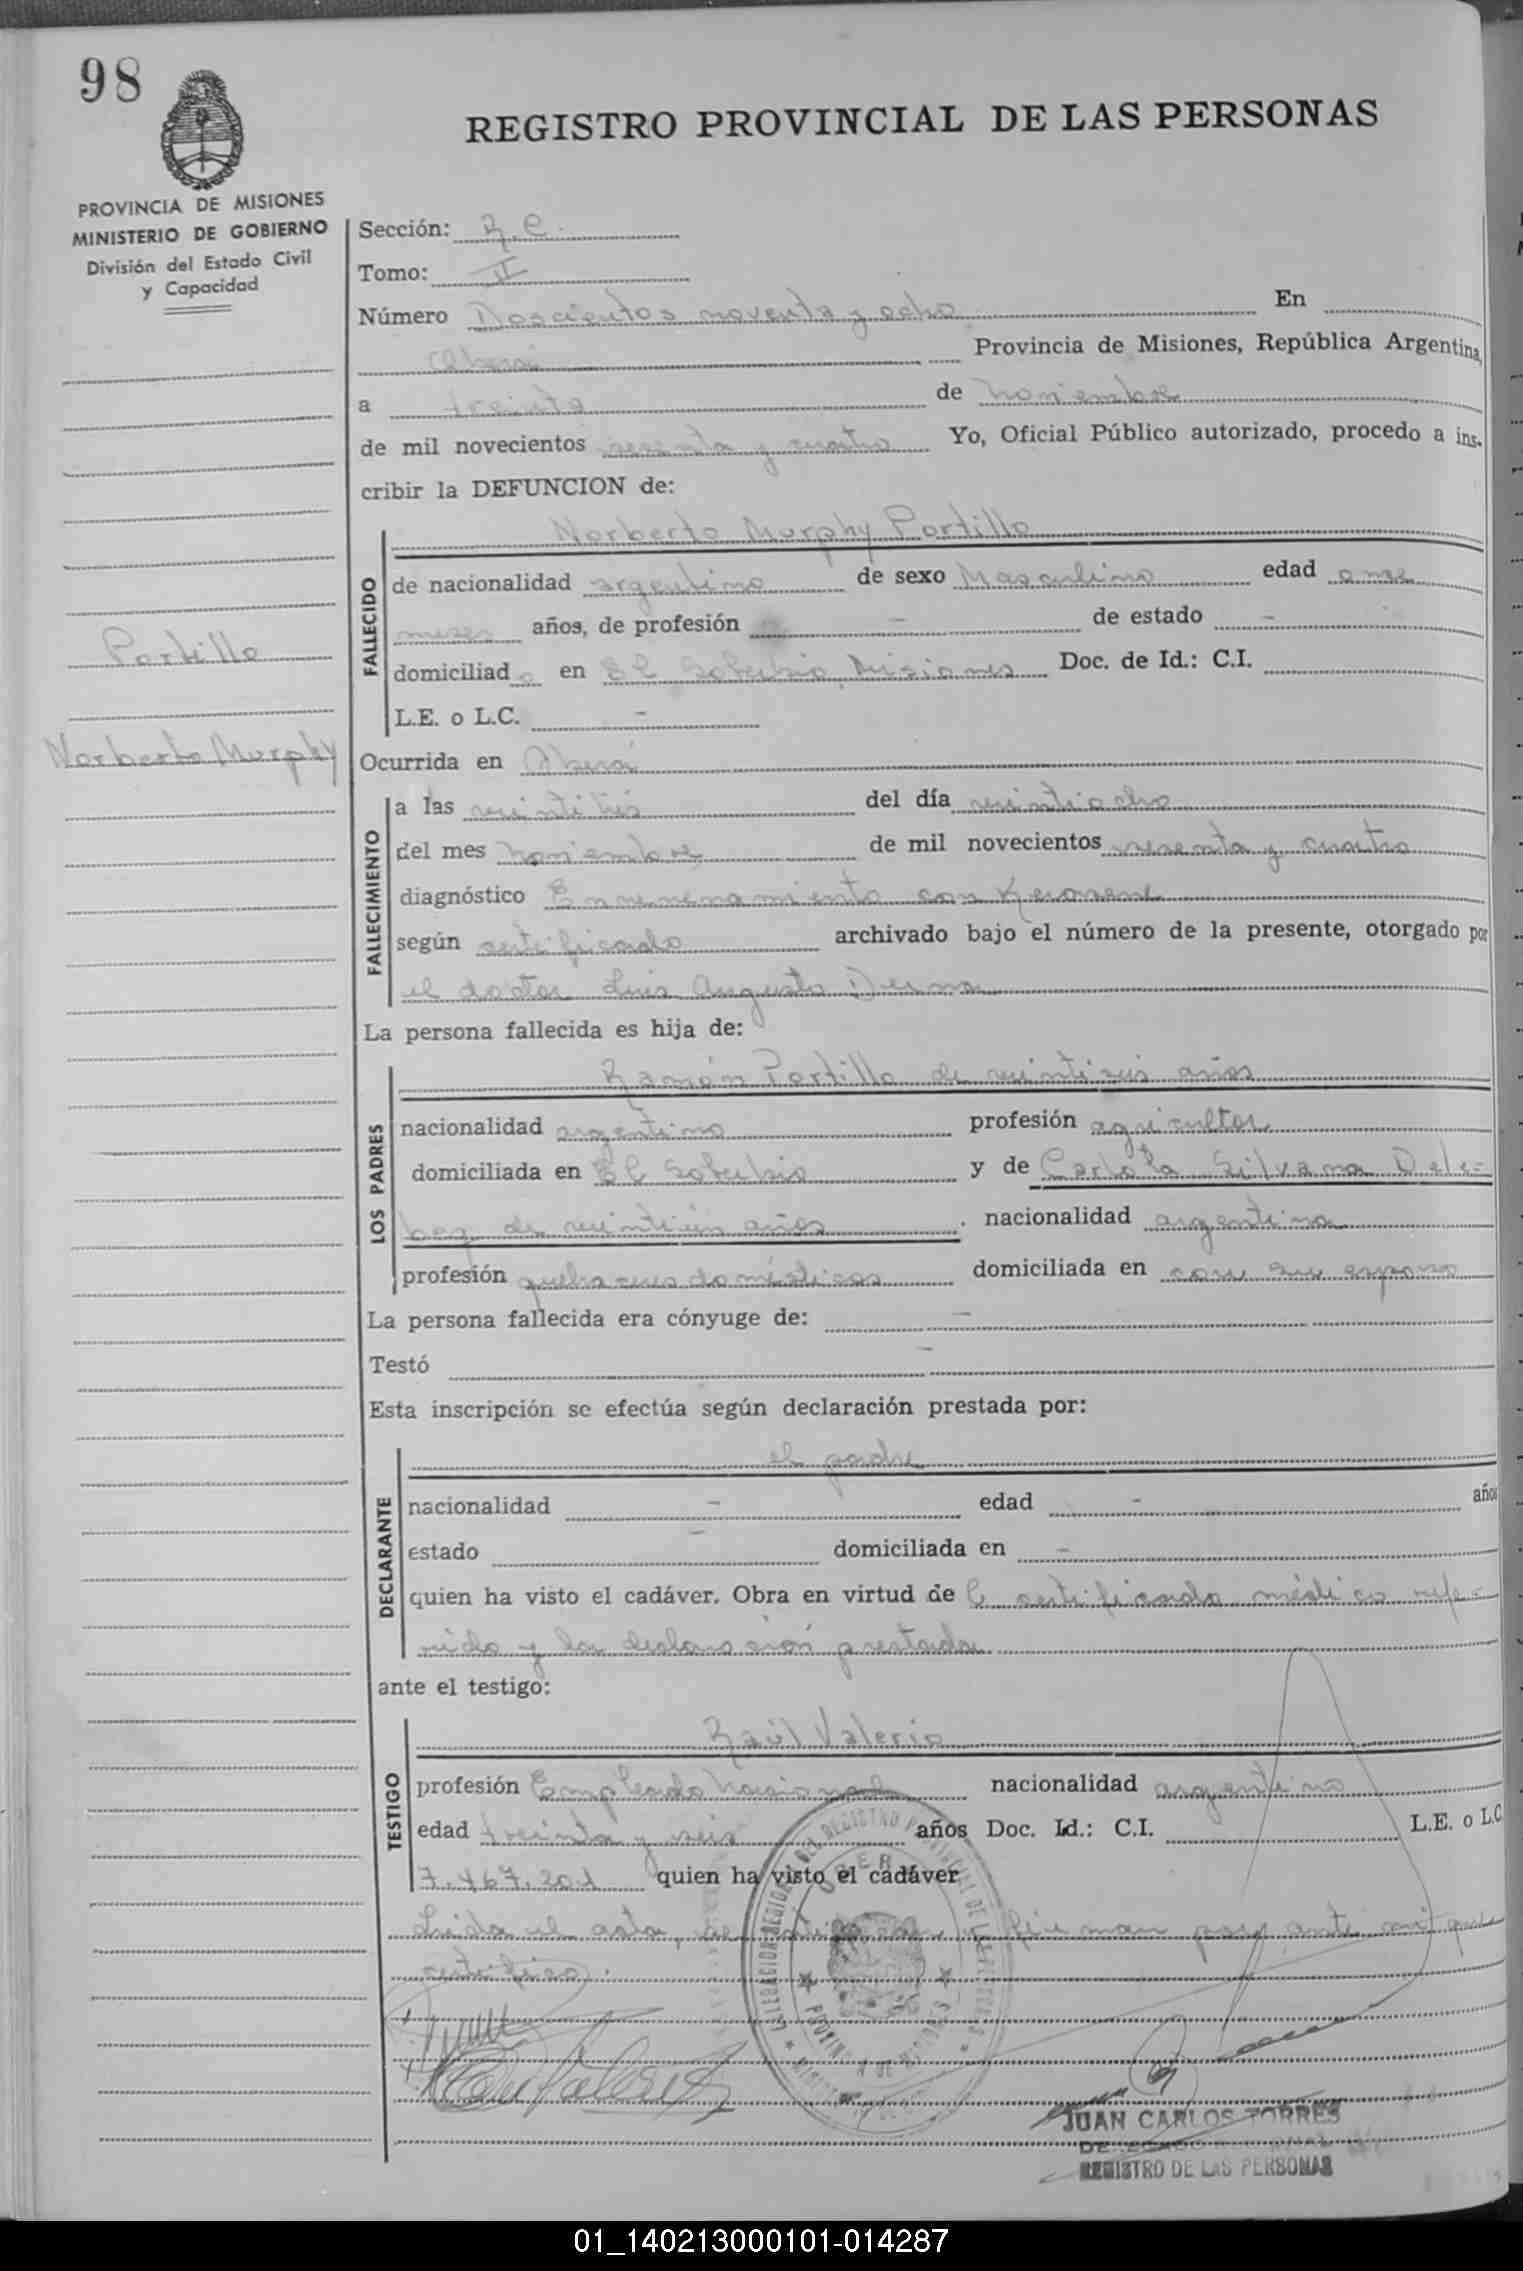 98
REGISTRO PROVINCIAL DE LAS PERSONAS
PROVINCIA DE MISIONES
MINISTERIO DE GOBIERNO
División del Estado Civil
y Capacidad
Sección: R.C.
Tomo: II
Número Doscientos noventa y ocho En
Oberá Provincia de Misiones, República Argentina,
a treinta de noviembre
de mil novecientos sesenta y cuatro Yo, Oficial Público autorizado, procedo a ins-
cribir la DEFUNCION de:
Portillo
Norberto Murphy
FALLECIDO
Norberto Murphy Portillo
de nacionalidad argentino de sexo Masculino edad once
meses años, de profesión - de estado -
domiciliado en El Soberbio, Misiones Doc. de Id.: C.I.
L.E. o L.C. -
Ocurrida en Oberá
FALLECIMIENTO
a las veintitrés del día veintiocho
del mes noviembre de mil novecientos sesenta y cuatro
diagnóstico Envenenamiento con Kerosene
según certificado archivado bajo el número de la presente, otorgado por
el doctor Luis Augusto
La persona fallecida es hija de:
LOS PADRES
Ramón Portillo de veintiseis años
nacionalidad argentino profesión agricultor
domiciliada en El Soberbio y de Carlota Silvana Dele-
de veintiún años . nacionalidad argentina
profesión quehaceres domésticos domiciliada en con su esposo
La persona fallecida era cónyuge de: -
Testó -
Esta inscripción se efectúa según declaración prestada por:
DECLARANTE
el padre
nacionalidad - edad - años
estado - domiciliada en -
quien ha visto el cadáver. Obra en virtud de l certificado médico refe-
rido y la declaración prestada
ante el testigo:
TESTIGO
Raúl Valerio
profesión Empleado Nacional nacionalidad argentino
edad treinta y seis años Doc. Id.: C.I. L.E. o L.C.
7.467.201 quien ha visto el cadáver
Leida el acta, la ratifican y firman por ante mi que
certifico.
JUAN CARLOS TORRES
REGISTRO DE LAS PERSONAS
01_140213000101-014287